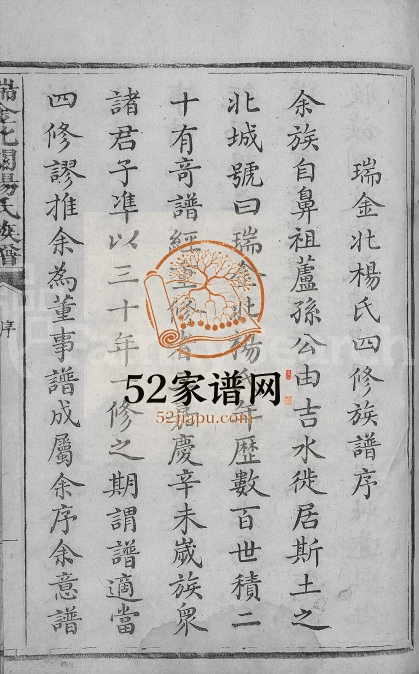 瑞金北楊氏四修族譜序
余族自鼻祖蘆孫公由吉水徙居斯土之
北城號曰瑞金北楊氏年歷數百世積二
十有奇譜經重修者慶辛未嵗族衆
諸君子準以三十年一修之期謂譜適當
四修謬推余為董事譜成屬余序余意譜
瑞金北關楊氏族譜
序
52家谱网
52jiapu.com